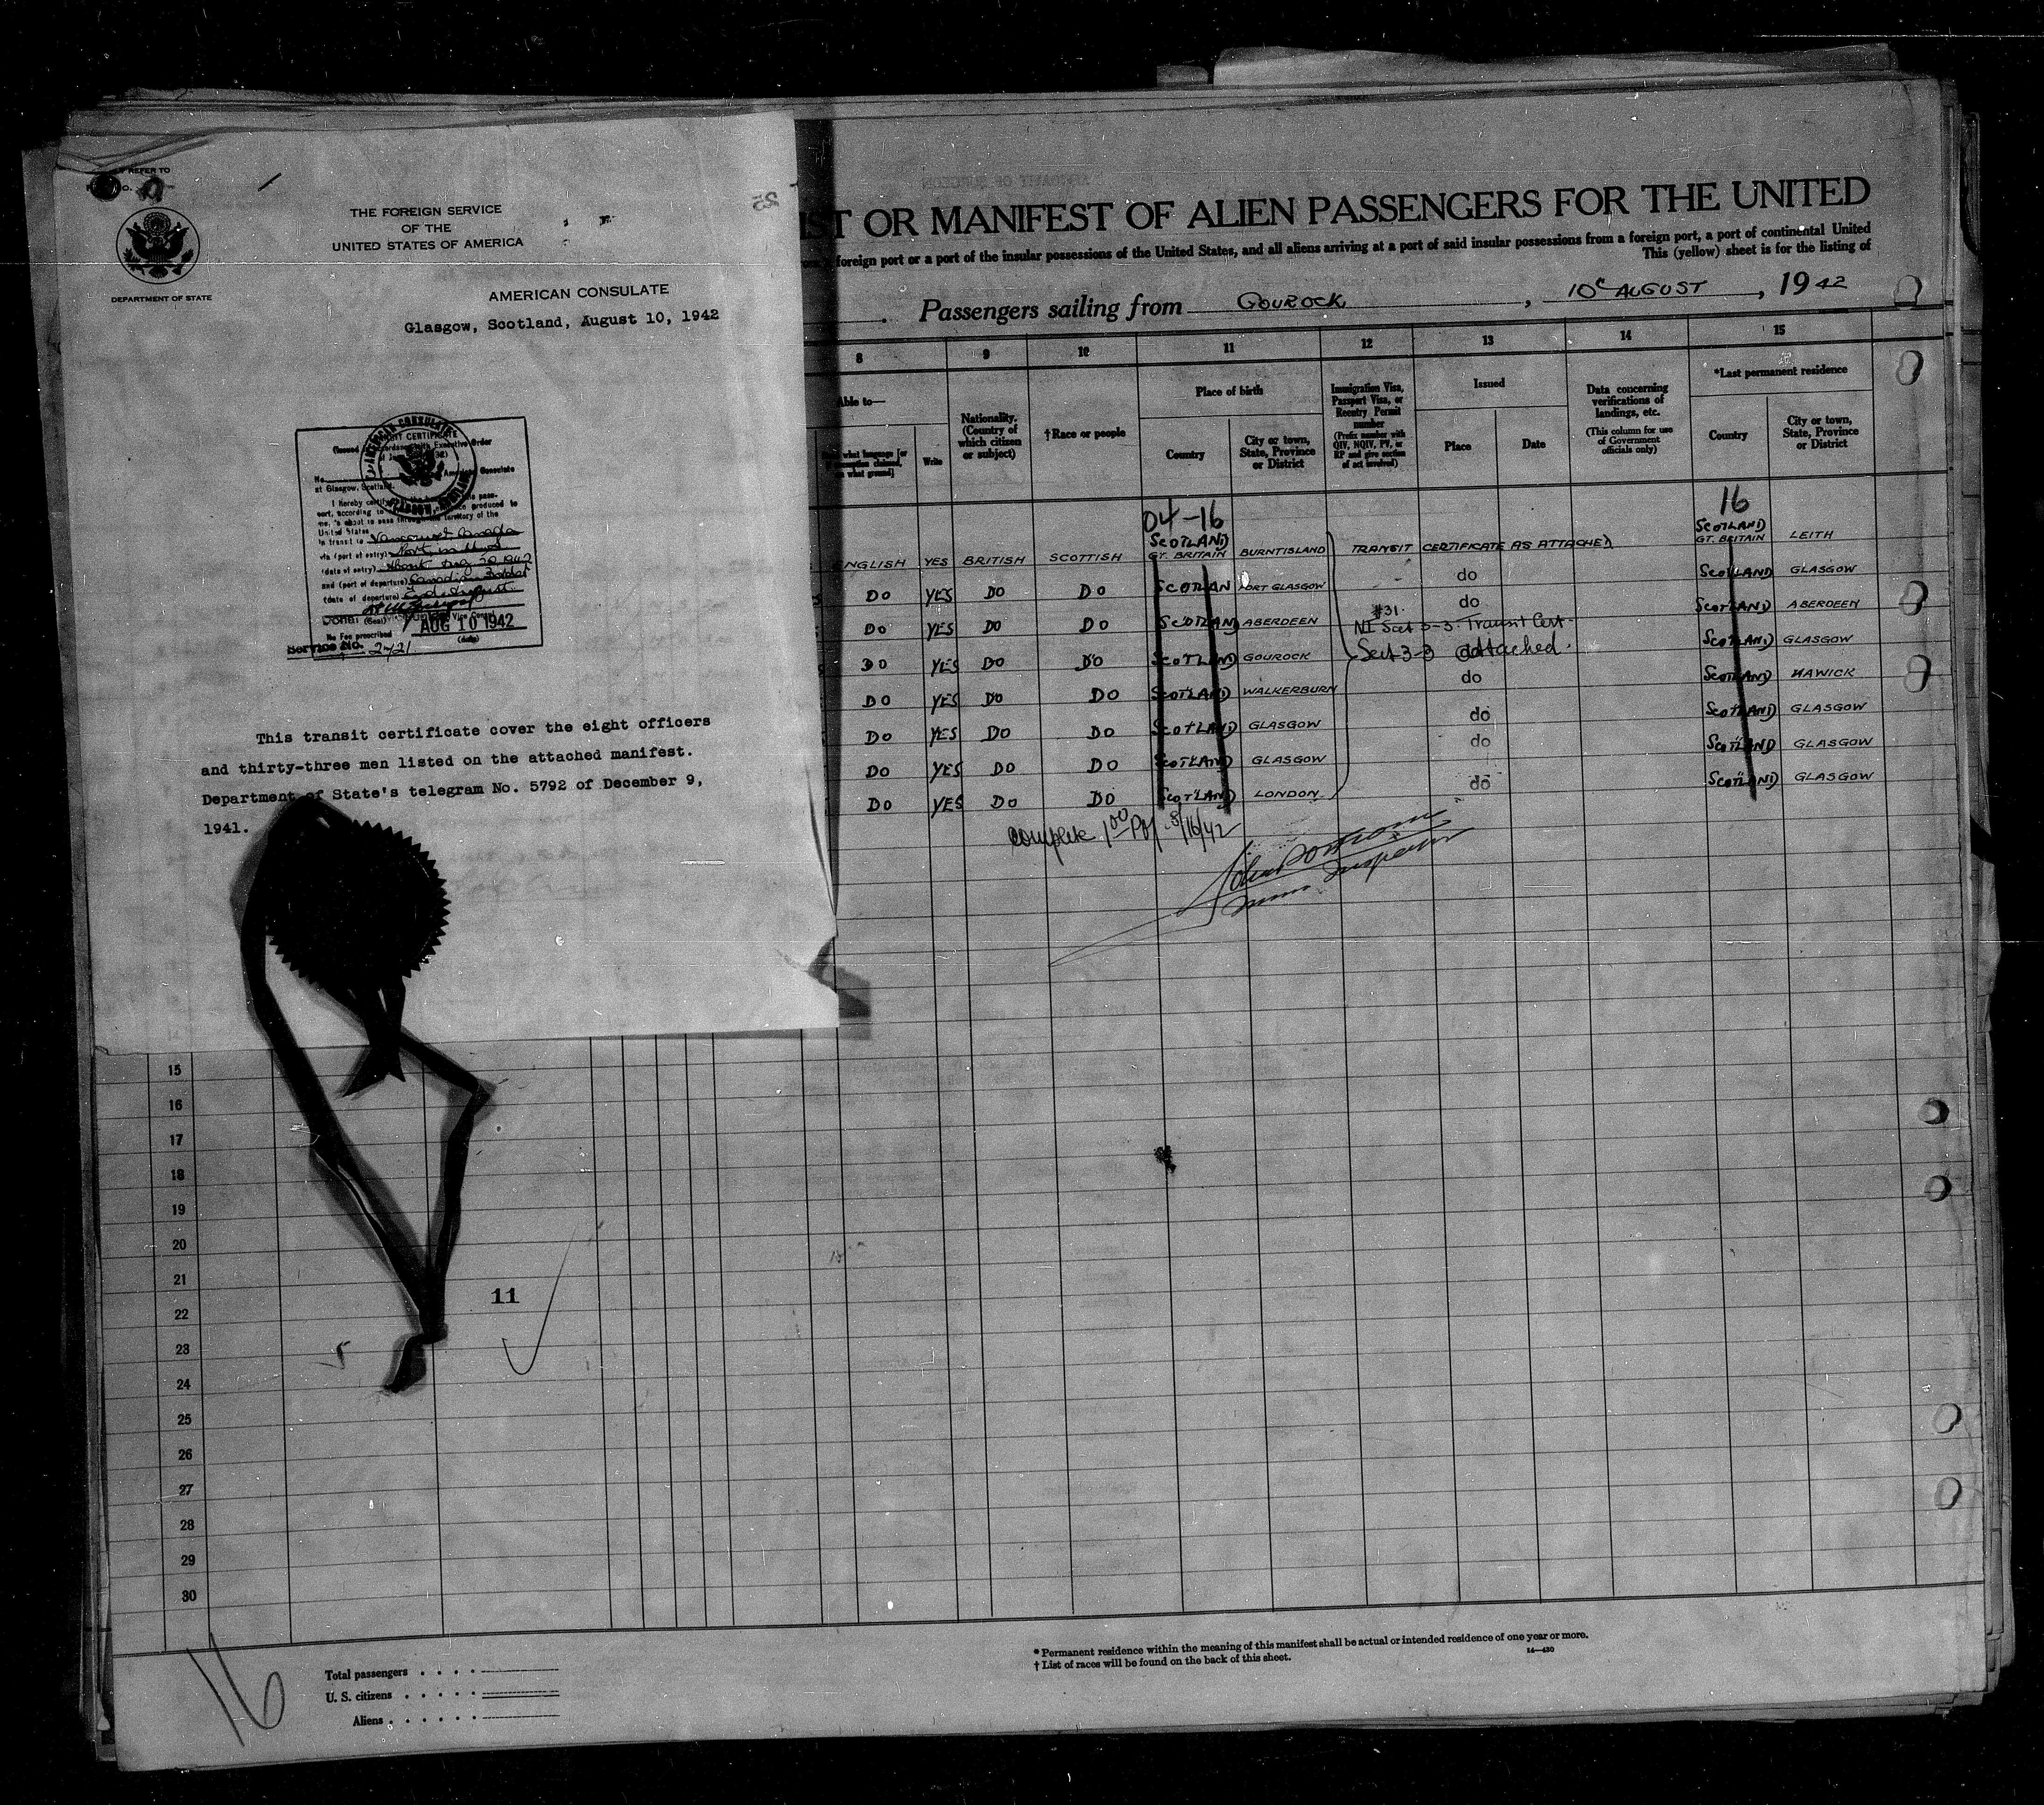 REFER TO
THE FOREIGN SERVICE
OF THE
UNITED STATES OF AMERICA
DEPARTMENT OF STATE
AMERICAN CONSULATE
Glasgow, Scotland, August 10, 1942
AMERICAN CONSULATE
CERTIFICATE
Executive Order
No.
at Glasgow, Scotland.
I hereby
port, according to produced to
me, is about to pass through the territory of the
United States
in transit to Vancouver, Canada
via (port of entry)
(date of entry) About Aug 20 1942
and (port of departure) Canadian
(date of departure) End August
(Seal) Vice Consul
No Fee prescribed AUG 10 1942
(date)
Service No. 2421
This transit certificate cover the eight officers
and thirty-three men listed on the attached manifest.
Department of State's telegram No. 5792 of December 9,
1941.
25
IST OR MANIFEST OF ALIEN PASSENGERS FOR THE UNITED
foreign port or a port of the insular possessions of the United States, and all aliens arriving at a port of said insular possessions from a foreign port, a port of continental United
This (yellow) sheet is for the listing of
Passengers sailing from GOUROCK, 10 AUGUST, 1942
8 9 10 11 12 13 14 15
Able to—
what language [or
on what ground]
Write
Nationality.
(Country of
which citizen
or subject)
†Race or people
Place of birth
Country
City or town,
State, Province
or District
Immigration Visa,
Passport Visa, or
Reentry Permit
number
(Prefix number with
QIV, NQIV, PV, or
RP and give section
of act involved)
Issued
Place
Date
Data concerning
verifications of
landings, etc.
(This column for use
of Government
officials only)
*Last permanent residence
Country
City or town,
State, Province
or District
04-16 16
ENGLISH YES BRITISH SCOTTISH SCOTLAND GT. BRITAIN BURNTISLAND TRANSIT CERTIFICATE AS ATTACHED SCOTLAND GT. BRITAIN LEITH
DO YES DO DO SCOTLAN PORT GLASGOW do SCOTLAND GLASGOW
DO YES DO DO SCOTLAND ABERDEEN do SCOTLAND ABERDEEN
#31
NI Sect 3-3 Transit Cert.
Sect 3-3 attached.
DO YES DO DO SCOTLAND GOUROCK SCOTLAND GLASGOW
DO YES DO DO SCOTLAND WALKERBURN do SCOTLAND HAWICK
DO YES DO DO SCOTLAND GLASGOW do SCOTLAND GLASGOW
DO YES DO DO SCOTLAND GLASGOW do SCOTLAND GLASGOW
DO YES DO DO SCOTLAND LONDON do SCOTLAND GLASGOW
Complete 1 00 PM 8/16/42
Inspector
15
16
17
18
19
20
21
11
22
23
24
25
26
27
28
29
30
16
Total passengers
U. S. citizens
Aliens
* Permanent residence within the meaning of this manifest shall be actual or intended residence of one year or more.
† List of races will be found on the back of this sheet.
14—430